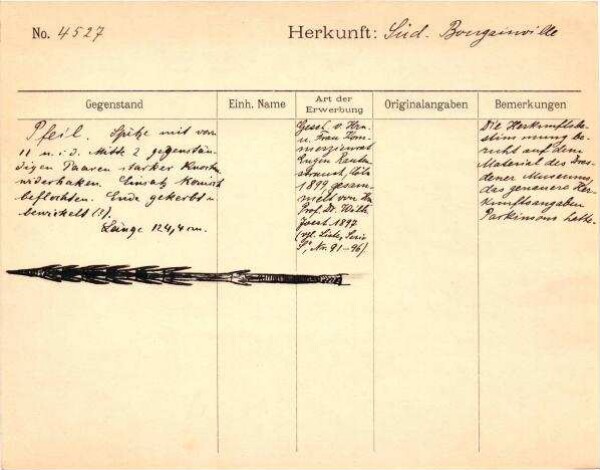 No. 4527
Herkunft: Süd. Bougainville
Gegenstand
Einh. Name
Art der
Erwerbung
Originalangaben
Bemerkungen
Pfeil. Spitze mit vorn
11 u. i. d. Mitte 2 gegenstän-
digen Paaren starker Knochen-
widerhaken. Einsatz konisch
beflochten. Ende gekerbt u.
bewickelt (?).
Länge 124,4 cm.
Gesch. v. Hrn.
u. Frau Kom-
merzienrat
Eugen Rauten-
strauch, Cöln
1899 gesam-
melt von Hrn.
Prof. Dr. Wilh.
Joest 1897
(vgl. Liste, Serie
Nr. 91-96).
Die Herkunftsbe-
stimmung be-
ruht auf dem
Material des Dres-
dener Museums,
das genauere Her-
kunftsangaben
Parkinsons hatte.